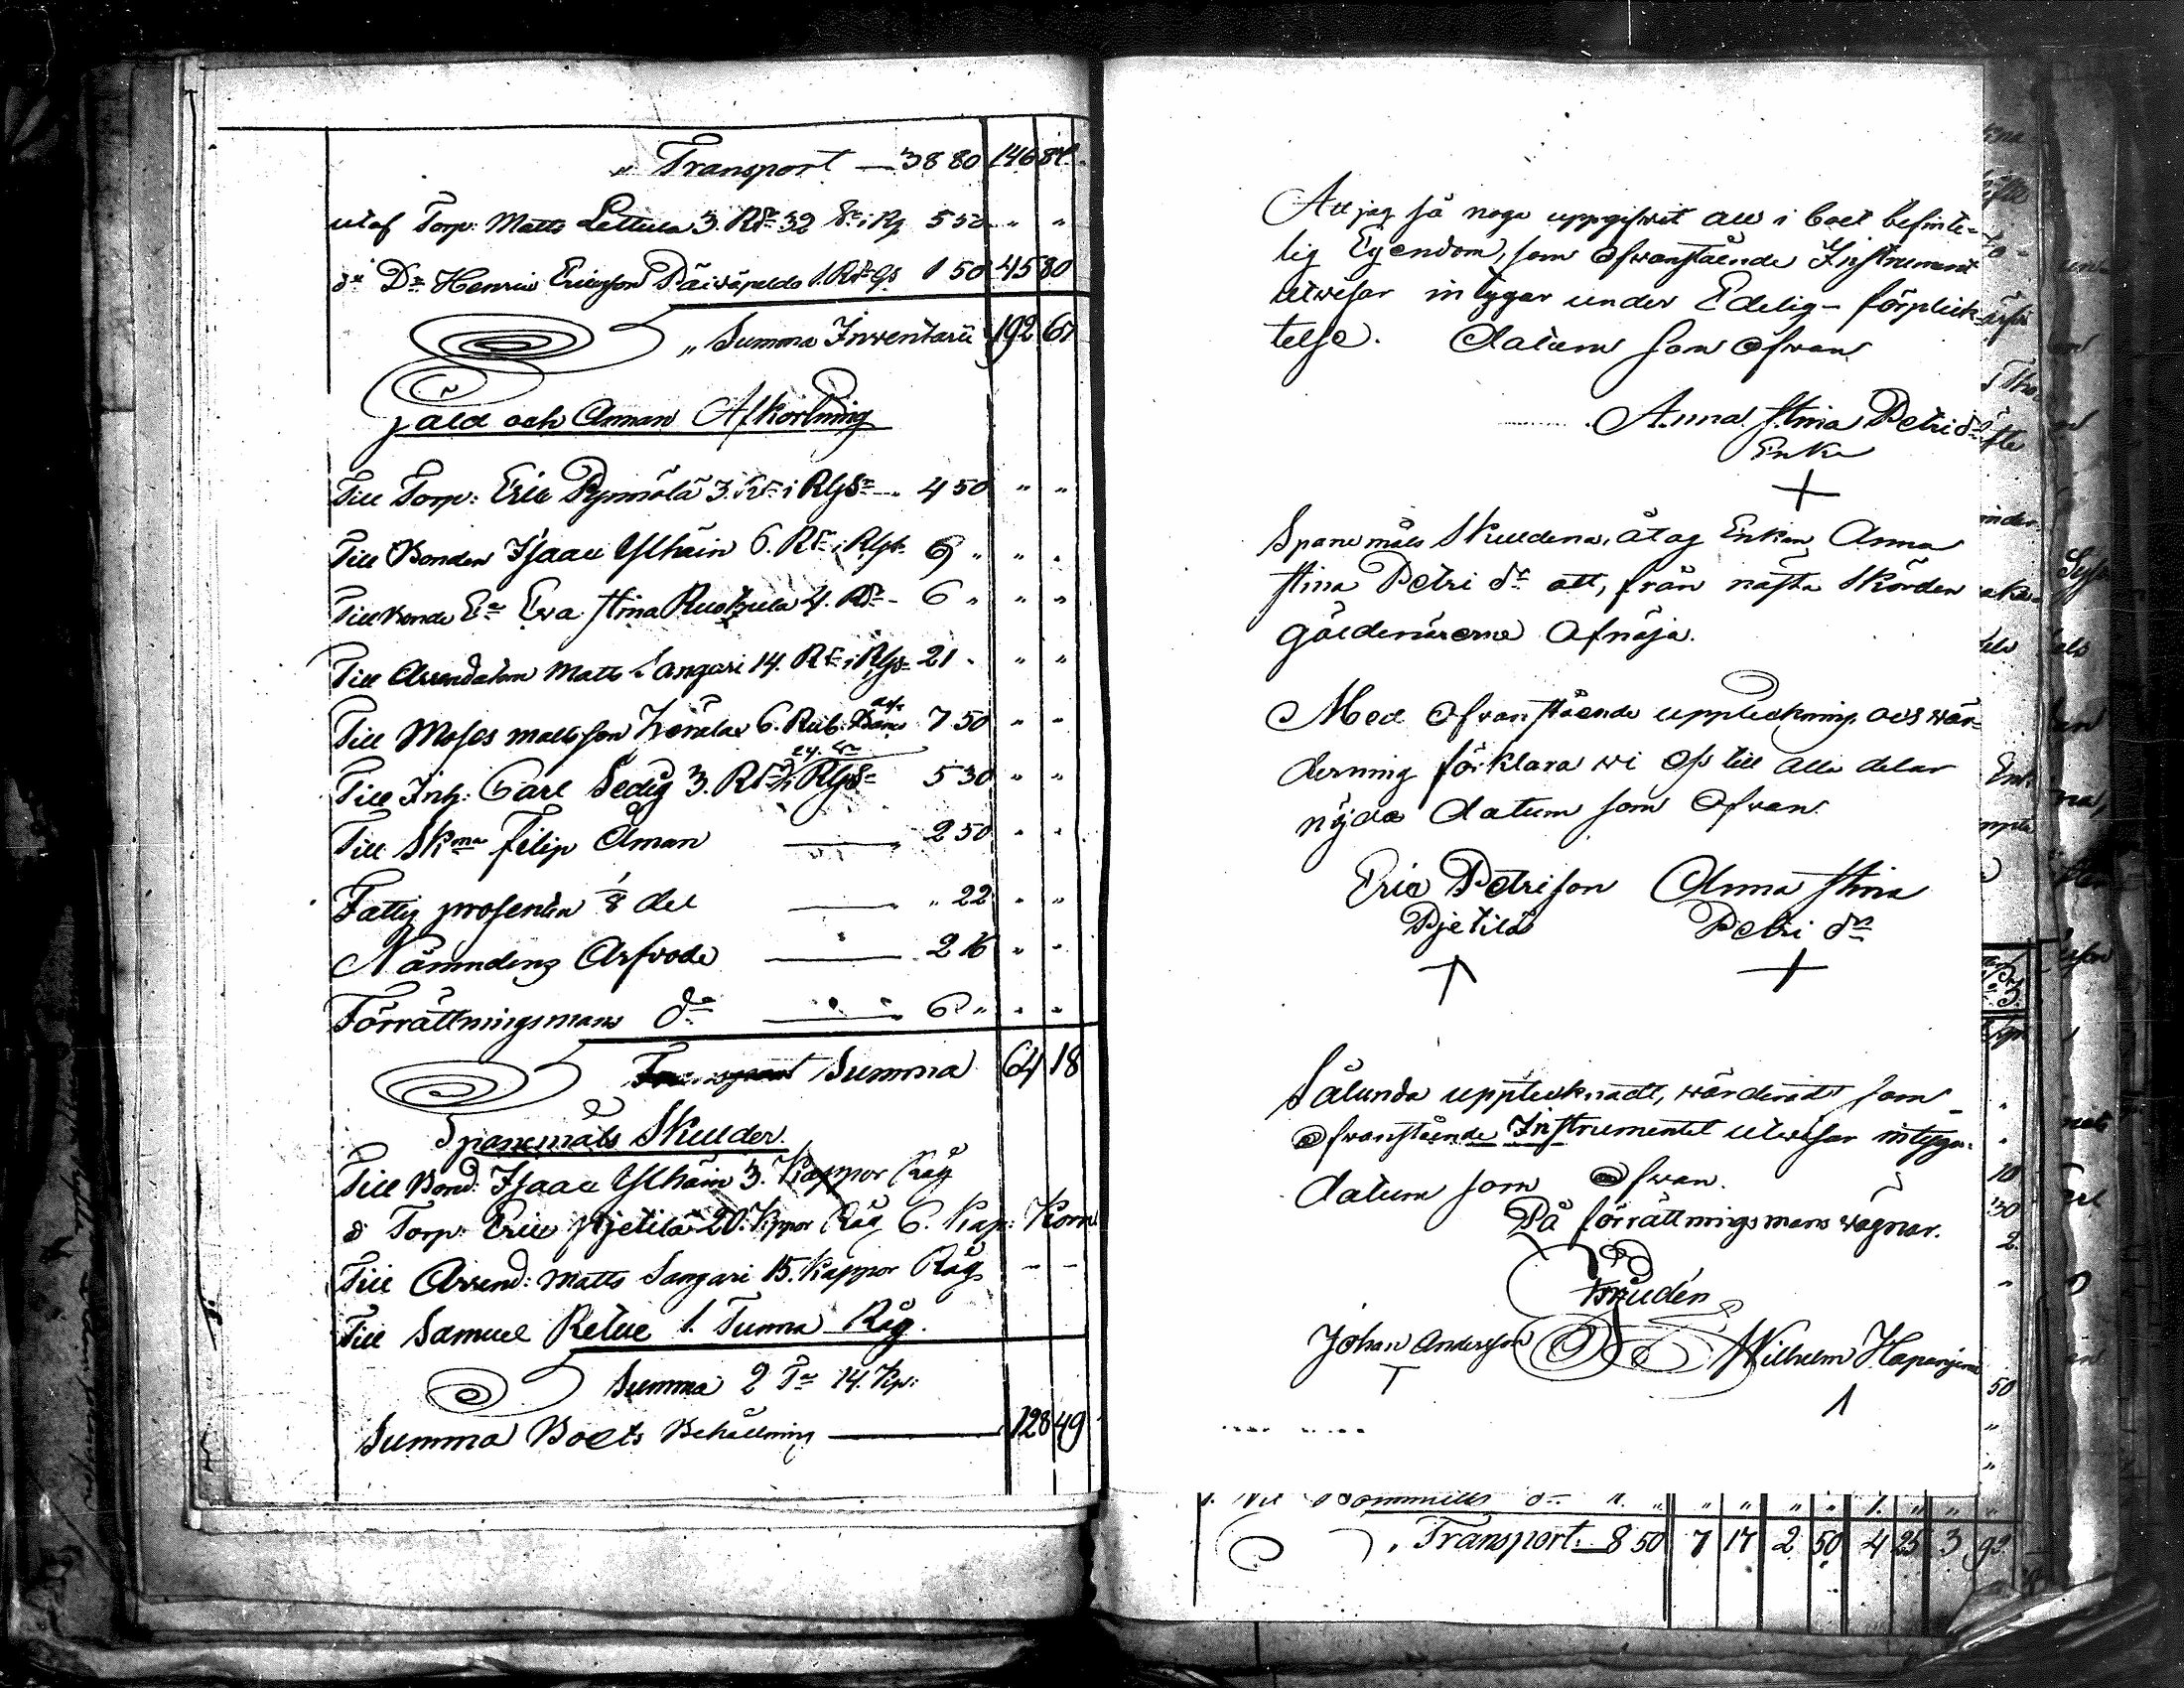 " Transport — 38 80 146 87.
utaf Torp: Matts Lettula 3. Rb 32 8 i Rg 5 50 " "
do Do Henric Ericsson Päiväpeldo 1. Rb Gs 1 50 45 80
" Summa Inventarii 192 67
Gäld och Annan Afkortning
Till Torp: Eric Pynnölä 3. Rb i RgSr 4 50 " "
Till Bonden Isaac Ylhäin 6. Rb i Rgs. 9 " " "
Till Bonde Ea Eva Stina Ruohula 4. Rb - 6 " " "
Till Arrendatorn Matts Sangari 14. Rb i Rgs 21 " " "
Till Moses Mattsson 6. Rub. 7 50 " "
Till Inh: Carl Sedig 3. Rb i RgS 5 30 " "
Till Skma Filip Åman — 2 50 " "
Fattig prosenten 1/8 del — " 22 " "
Nämndens Arfvode — 2 16 " "
Förrättningsmans do — 6 " " "
Transport Summa 64 18
Spanemåls Skulder.
Till Bond: Isaac Ylhäin 3. Kappor Råg
d Torp: Eric Pjetilä 20. Kppor Råg 6. Kap: Korn
Till Arrend: Matts Sangari 15. Kappor Råg - -
Till Samuel Relue 1. Tunna Råg.
Summa 2 Tr 14. Kp:
Summa Boets Behållning — 128 49
Att jag så noga uppgifwit allt i boet befinte-
lig Egendom, som Ofwanstående Instrument
utwisar intygar under Edelig förplick-
telse. datum som ofwan
Anna Stina Petri dr
Enka
+
Spanemåls Skulderna, åtog Enkan Anna
Stina Petri dr att, från nästa Skörden
gäldenärerne Afnöja.
Med Ofwanstående uppteckning och wär-
dering förklara wi Oss till alla delar
nöjda datum som Ofwan.
Eric Petrison Anna Stina
Pjetilä Petri dr
+
Sålunda upptecknadt, wärderadt som
Ofwanstående Instrumentet utwisar intyga.
datum som Ofwan.
På förrättningsmans wägnar.
Johan Andersson Wilhelm Haparijen
T 1
Transport. 8 50 7 17 2 50 4 25 3 92.